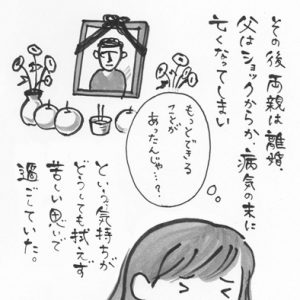 その後、両親は離婚。
父はショックからか、病気の末に
亡くなってしまい
もっとできる
ことが
あったんじゃ…?
という気持ちが
どうしても拭えず
苦しい思いで
過ごしていた。